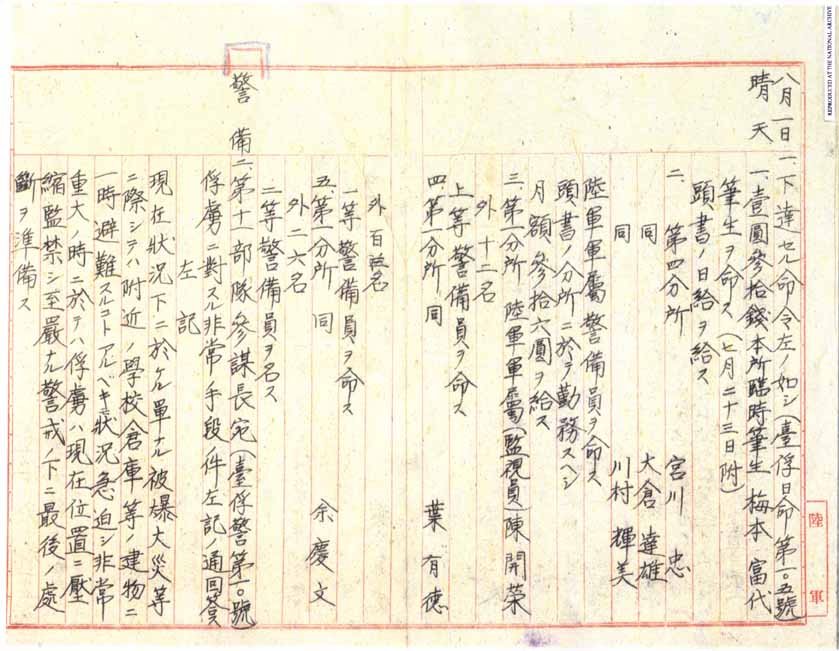 八月一日
晴天
一、下達セル命令左ノ如シ(臺俘日命第一〇五號)
一、壹圓參拾錢本所臨時筆生 梅本 富代
筆生ヲ命ス(七月二十三日附)
頭書ノ日給ヲ給ス
二、第四分所 宮川 忠
同 大倉 達雄
同 川村 輝美
陸軍軍屬警備員ヲ命ス
頭書ノ分所ニ於テ勤務スヘシ
月額參拾六圓ヲ給ス
三、第一分所 陸軍軍屬(監視員)陳開榮
外十二名
上等警備員ヲ命ス
四、第一分所 同 葉有德
外百名
一等警備員ヲ命ス
五、第一分所 同 余慶文
外二六名
二等警備員ヲ名ス
警備二、第十一部隊參謀長宛(臺俘警第一〇號)
俘虜ニ對スル非常手段ノ件左記ノ通回答
左記
現在狀況下ニ於ケル單ナル被爆火災等
ニ際シテハ附近ノ學校倉庫等ノ建物ニ
一時避難スルコトアルベキ狀況急迫シ非常
重大ノ時ニ於テハ俘虜ハ現在位置ニ壓
縮監禁シ至嚴ナル警戒ノ下ニ最後ノ處
斷ヲ準備ス
陸軍
REPRODUCED AT THE NATIONAL ARCHIVE